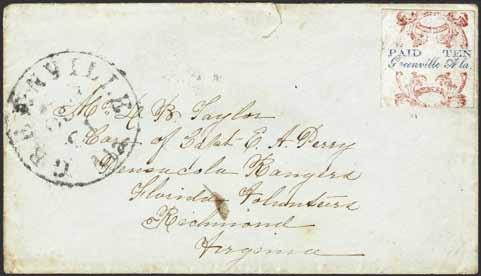 PAID TEN
Greenville Ala.
GREENVILLE
Mr. H B Taylor
Car of Capt E. A Perry
Pensacola Rangers
Florida Volunteers
Richmond
Virginia